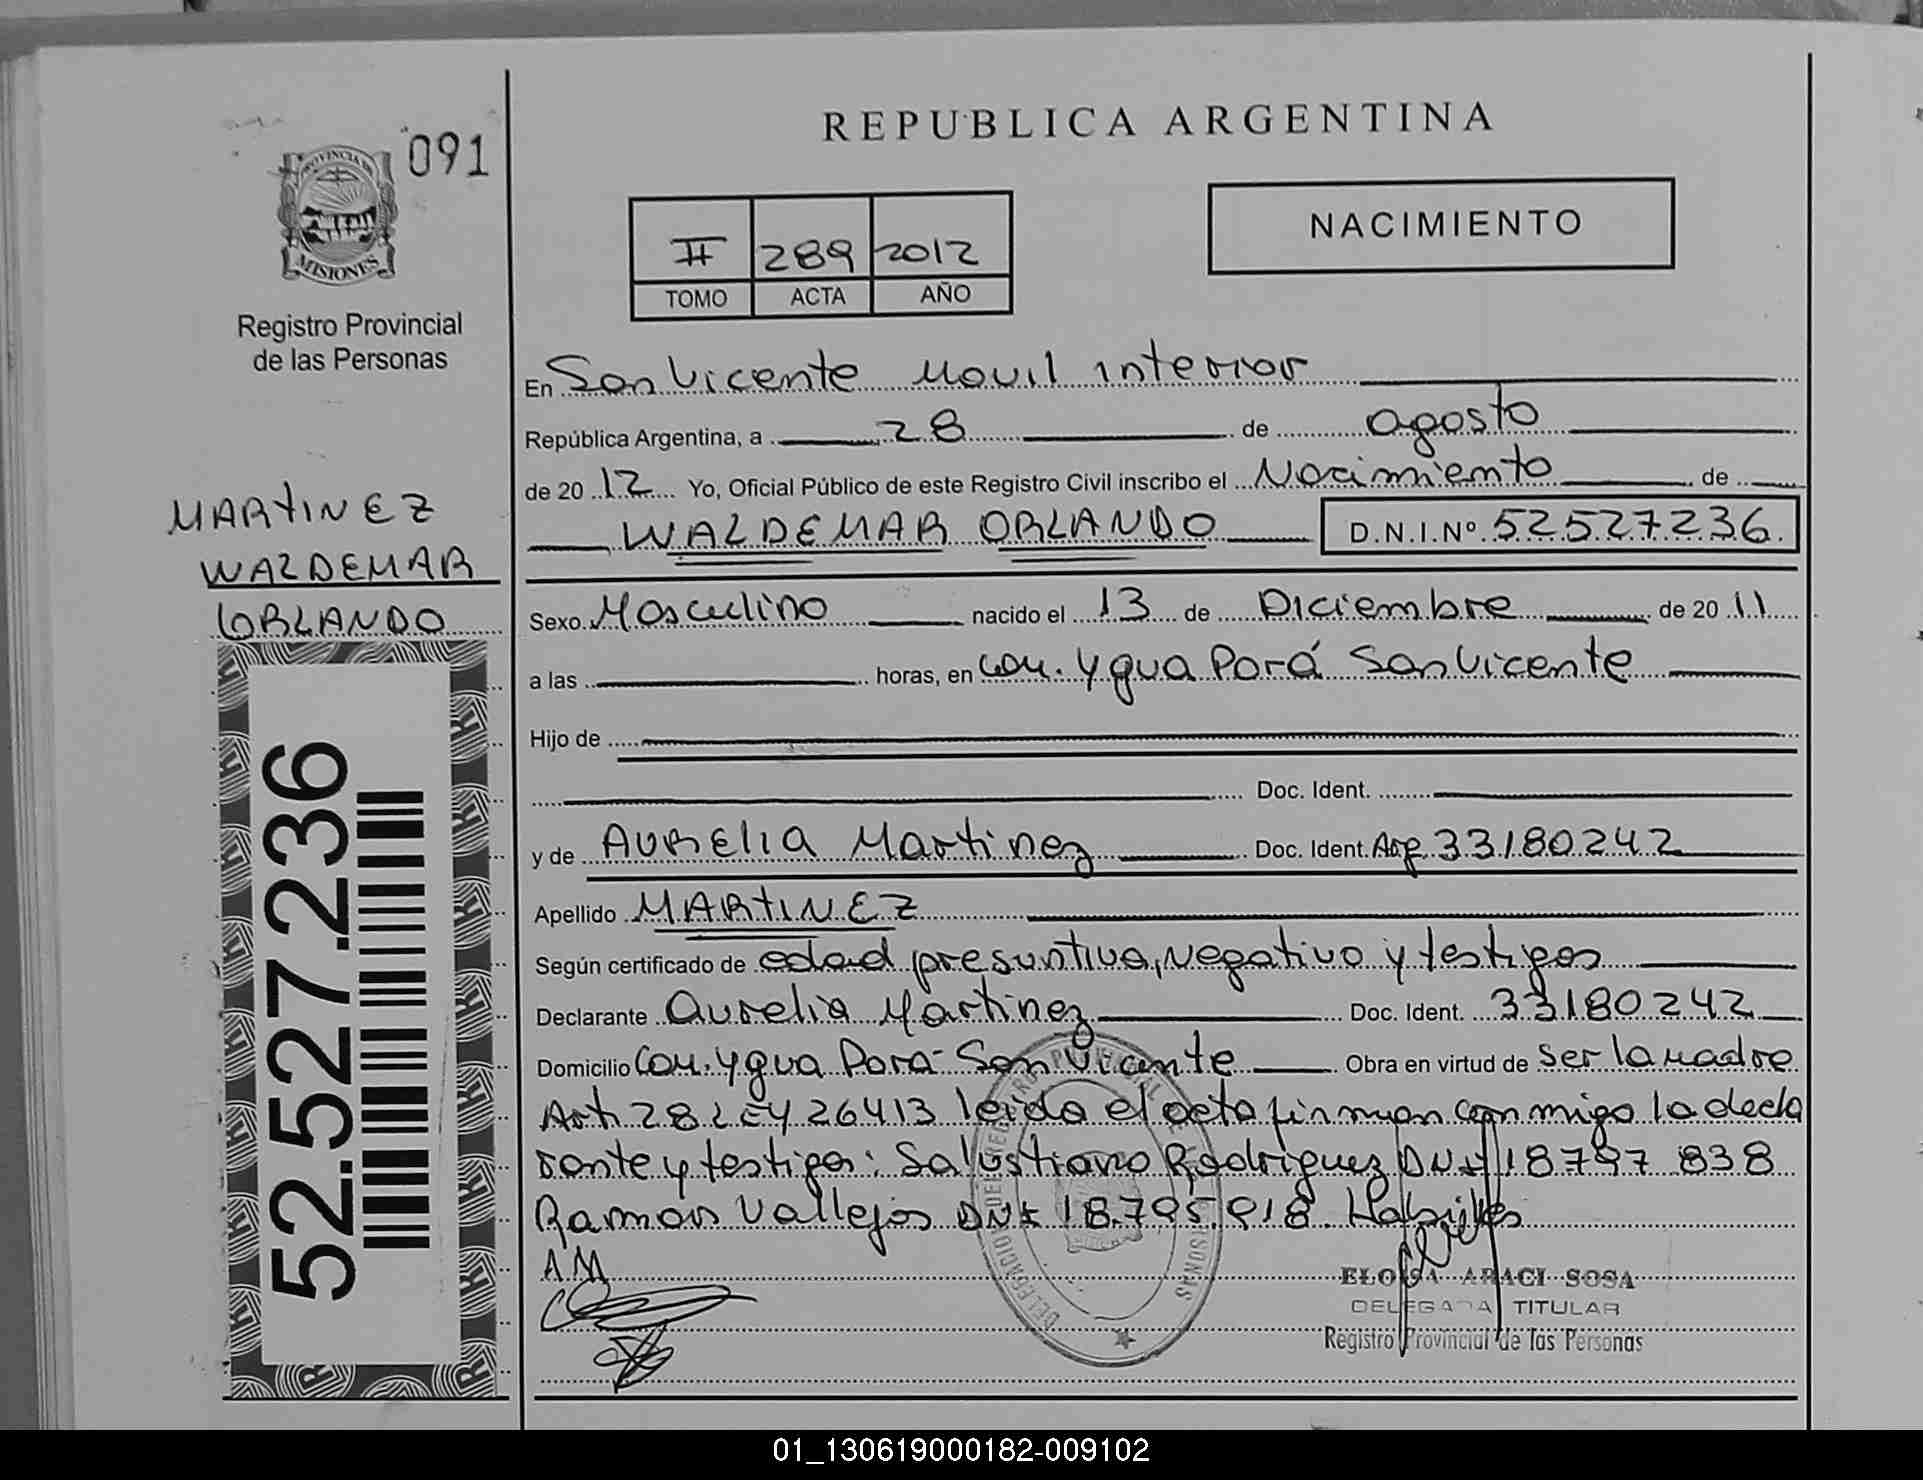 091
PROVINCIA DE
MISIONES
Registro Provincial
de las Personas
MARTINEZ
WALDEMAR
ORLANDO
52.527.236
REPUBLICA ARGENTINA
II 289 2012
TOMO ACTA AÑO
NACIMIENTO
En San Vicente Movil interior
República Argentina, a 28 de agosto
de 20 12 Yo, Oficial Público de este Registro Civil inscribo el Nacimiento de
WALDEMAR ORLANDO D.N.I.Nº 52527236
Sexo Masculino nacido el 13 de Diciembre de 20 11
a las horas, en Col. Ygua Porá San Vicente
Hijo de
Doc. Ident.
y de AURElIA Martinez Doc. Ident. Arg. 33180242
Apellido MARTINEZ
Según certificado de edad presuntiva, negativo y testigos
Declarante Aurelia Martinez Doc. Ident. 33180242
Domicilio Col. Ygua Porá - San Vicente Obra en virtud de ser la madre
Art. 28 LEY 26413 leida el acta firman conmigo la decla
rante y testigos: Salustiano Rodriguez DNI 18797 838
Ramon Vallejos DNI 18.795.918. Habiles
AM
ELOISA ARACI SOSA
DELEGADA TITULAR
Registro Provincial de las Personas
01_130619000182-009102